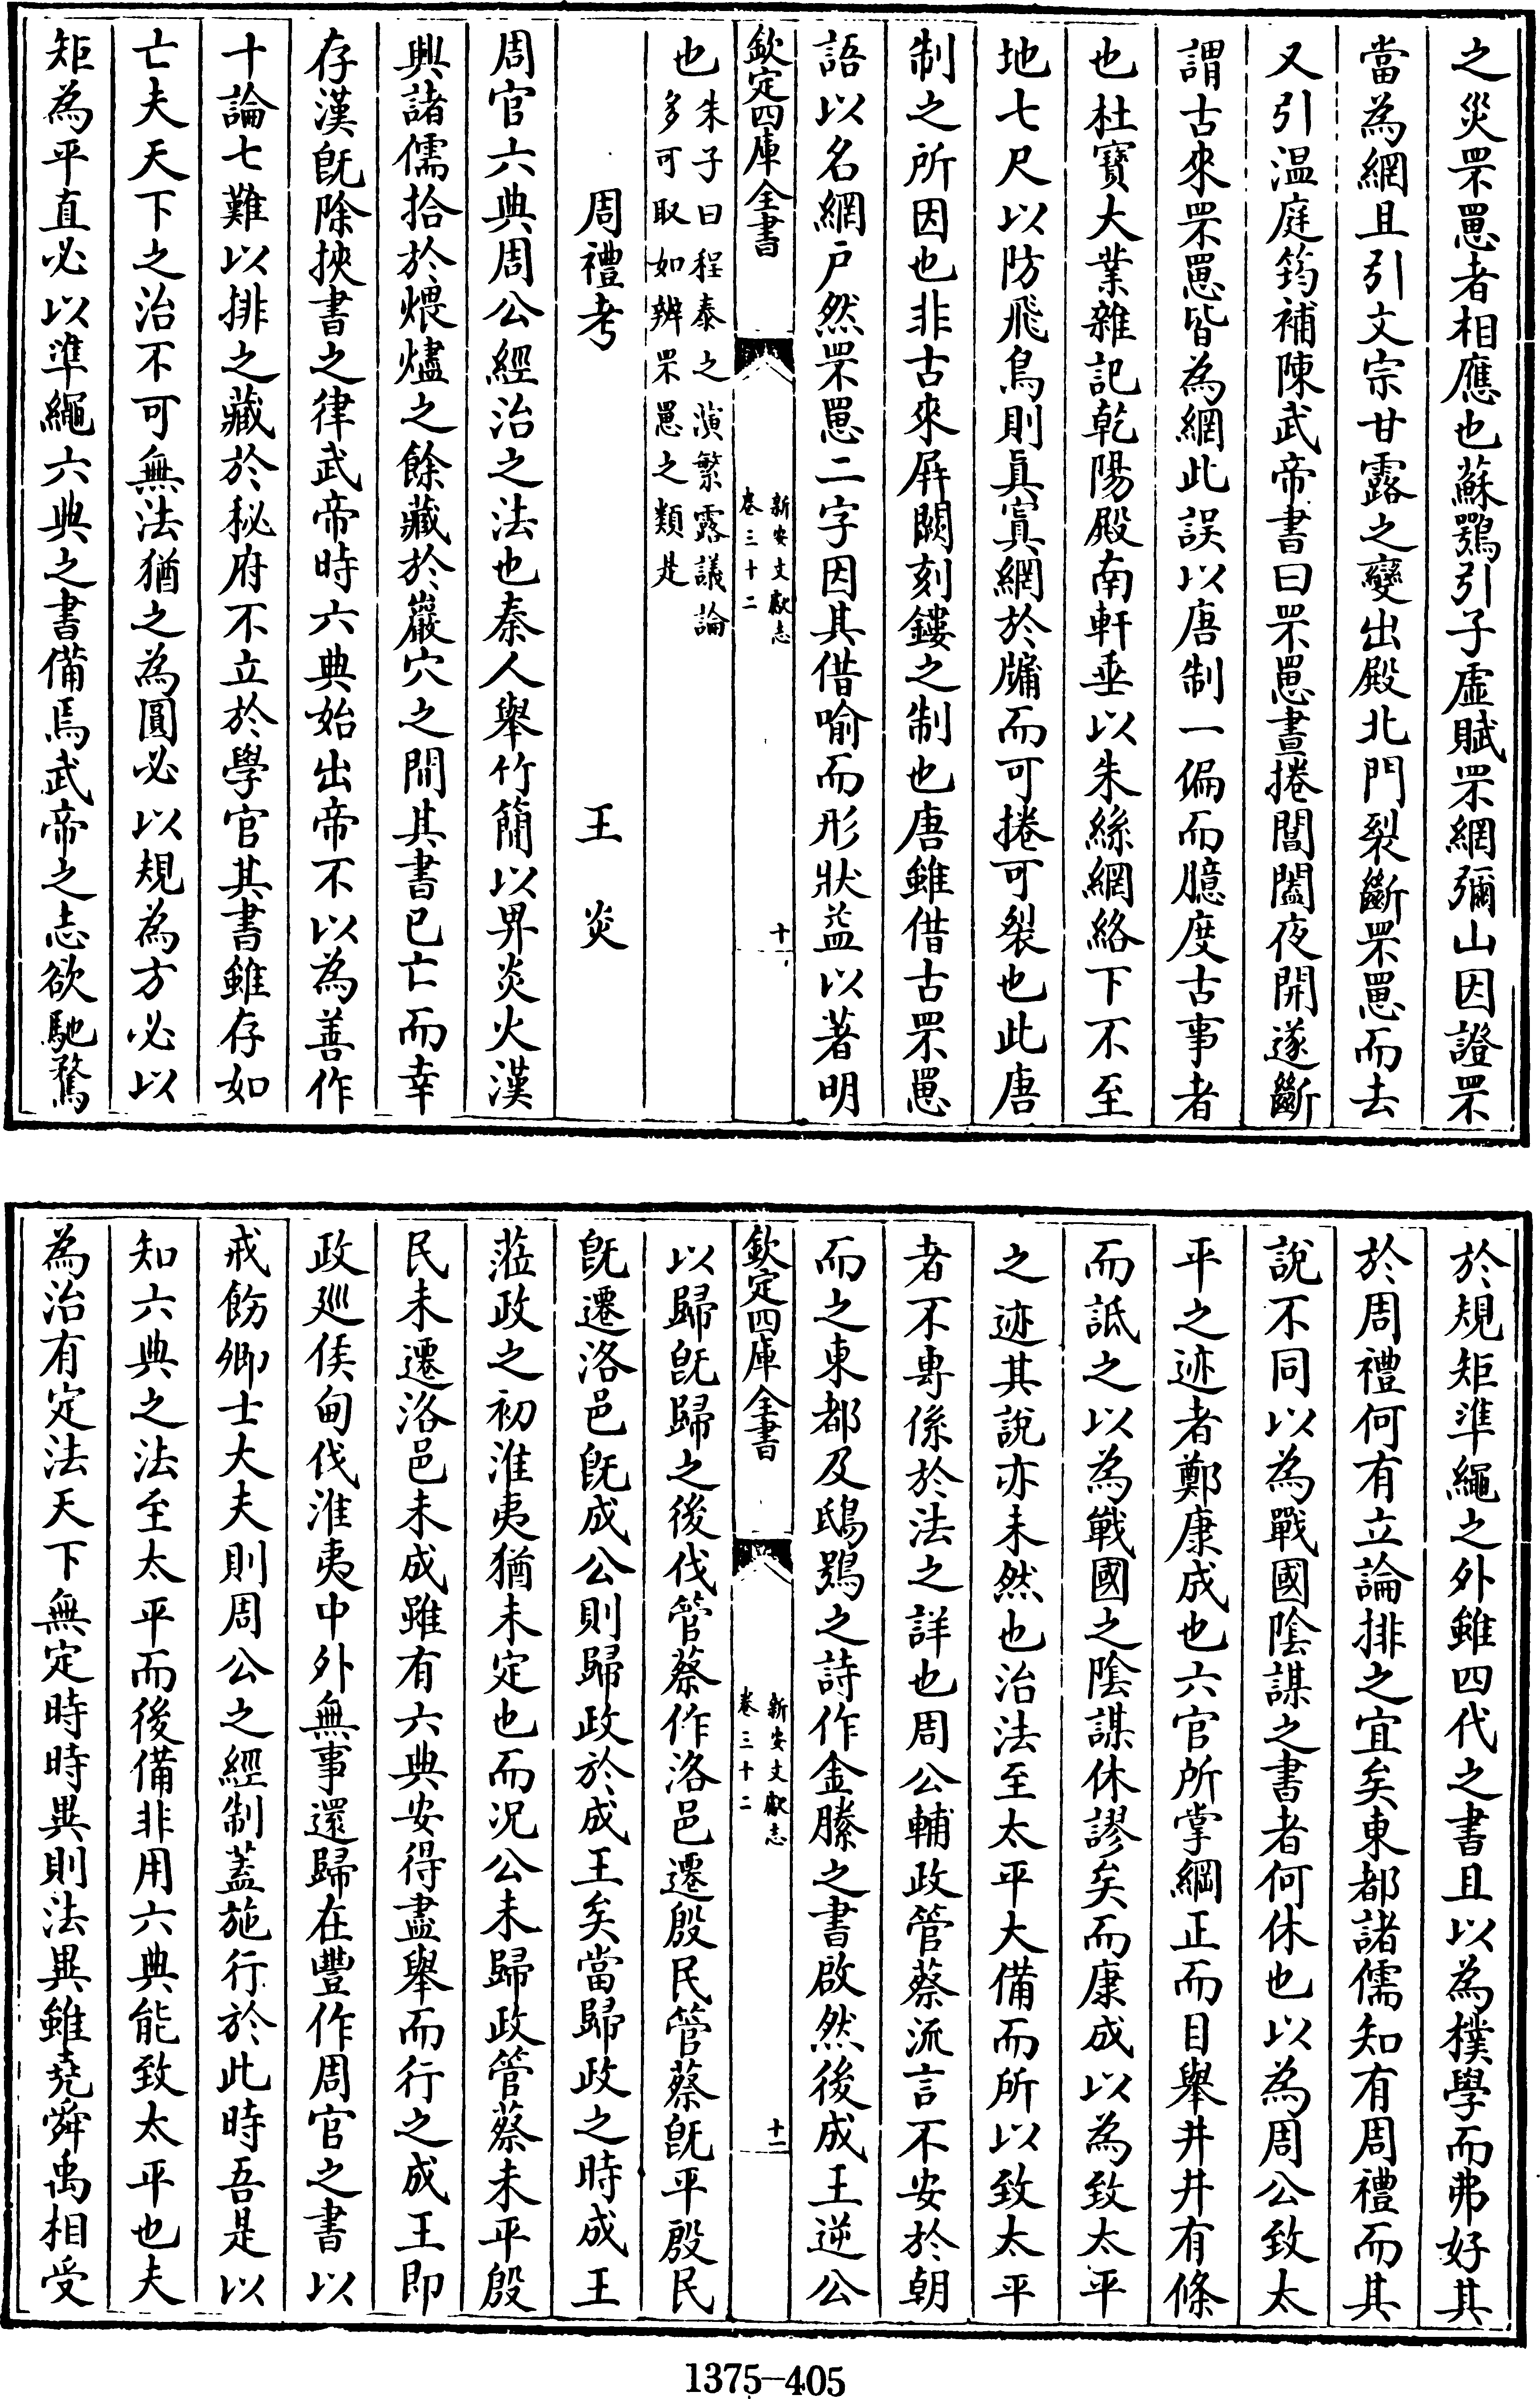 之災罘罳者相應也蘇鶚引子虛賦罘網彌山因證罘
當為網且引文宗甘露之變出殿北門裂斷罘罳而去
又引温庭筠補陳武帝書曰罘罳晝捲閶闔夜開遂斷
謂古來罘罳皆為網此誤以唐制一偏而臆度古事者
也杜寶大業雜記乾陽殿南軒垂以朱絲網絡下不至
地七尺以防飛鳥則真寘網於牖而可捲可裂也此唐
制之所因也非古來屏闕刻鏤之制也唐雖借古罘罳
語以名網户然罘罳二字因其借喻而形狀益以著明
欽定四庫全書
新安文獻志
卷三十二
十
也
朱子曰程泰之演繁露議論
多可取如辨罘罳之類是
周禮考
王炎
周官六典周公經治之法也秦人舉竹簡以畀炎火漢
興諸儒拾於煨燼之餘藏於巖穴之間其書已亡而幸
存漢旣除挾書之律武帝時六典始出帝不以為善作
十論七難以排之藏於秘府不立於學官其書雖存如
亡夫天下之治不可無法猶之為圓必以規為方必以
矩為平直必以準繩六典之書備焉武帝之志欲馳騖
於規矩準繩之外雖四代之書且以為樸學而弗好其
於周禮何有立論排之宜矣東都諸儒知有周禮而其
說不同以為戰國陰謀之書者何休也以為周公致太
平之迹者鄭康成也六官所掌綱正而目舉井井有條
而詆之以為戰國之陰謀休謬矣而康成以為致太平
之迹其說亦未然也治法至太平大備而所以致太平
者不專係於法之詳也周公輔政管蔡流言不安於朝
而之東都及鴟鴞之詩作金縢之書啟然後成王逆公
欽定四庫全書
新安文獻志
卷三十二
十一
以歸旣歸之後伐管蔡作洛邑遷殷民管蔡旣平殷民
旣遷洛邑旣成公則歸政於成王矣當歸政之時成王
蒞政之初淮夷猶未定也而況公未歸政管蔡未平殷
民未遷洛邑未成雖有六典安得盡舉而行之成王即
政廵侯甸伐淮夷中外無事還歸在豐作周官之書以
戒飭卿士大夫則周公之經制蓋施行於此時吾是以
知六典之法至太平而後備非用六典能致太平也夫
為治有定法天下無定時時異則法異雖堯舜禹相受
1375-405